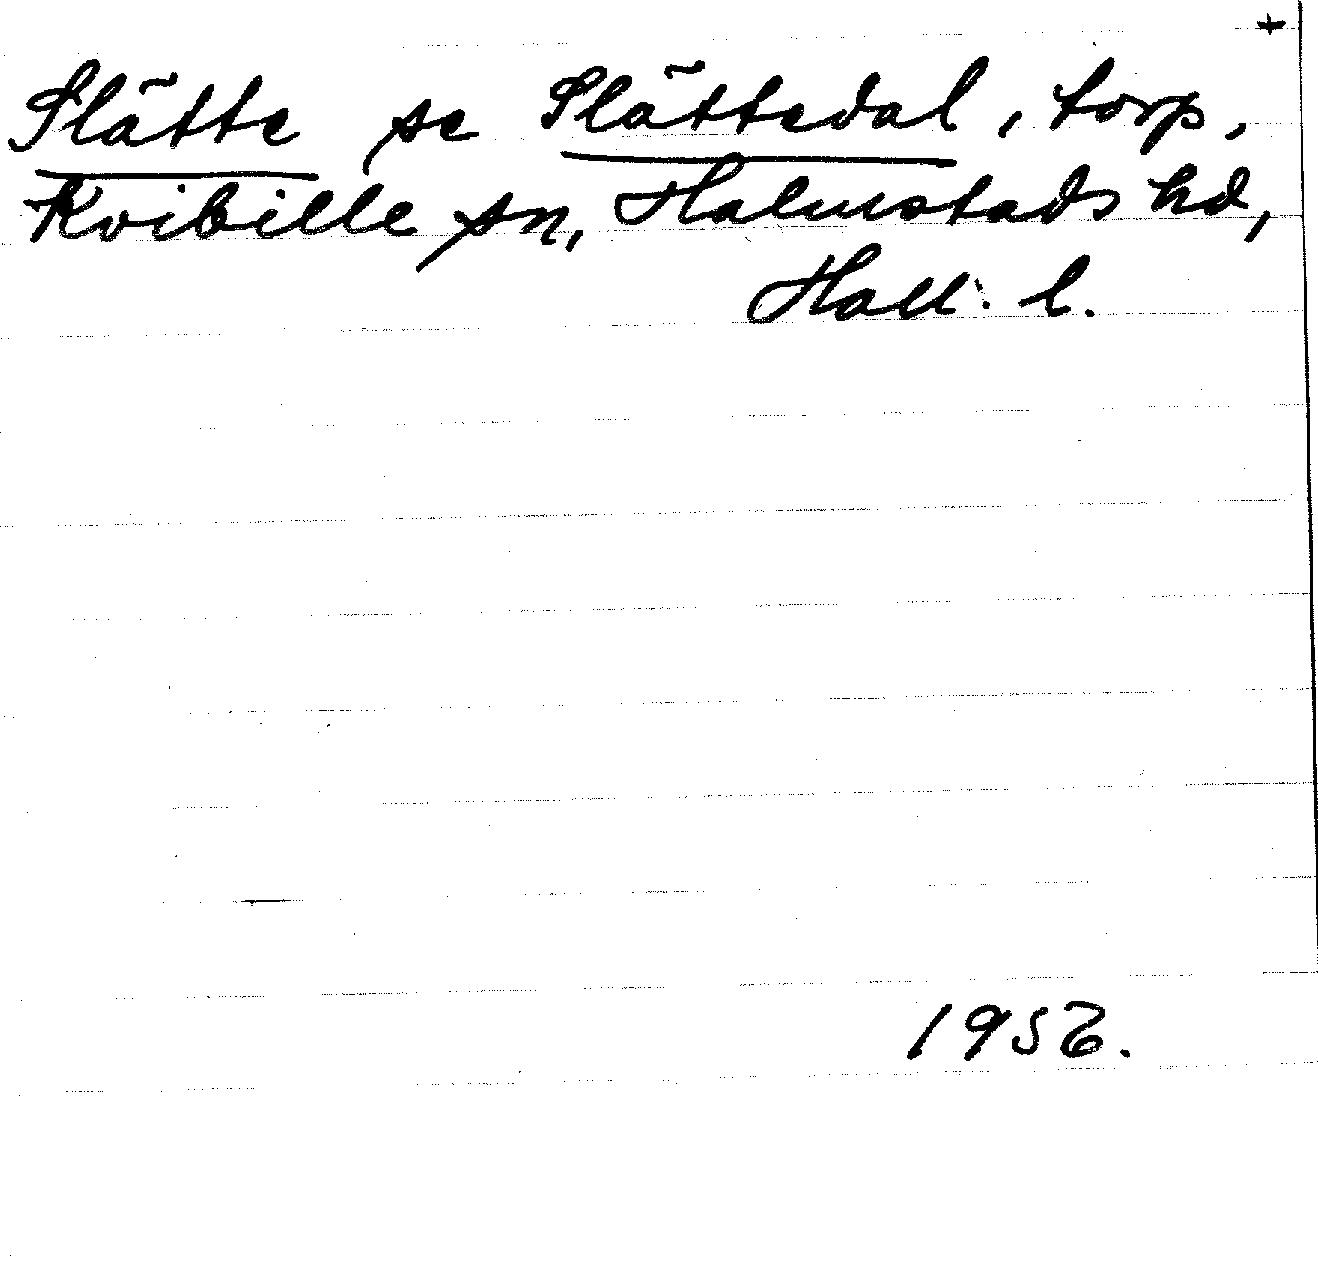 Slätte se Slättedal, torp,
Kvibille sn, Halmstads hd,
Hall. l.
1952.